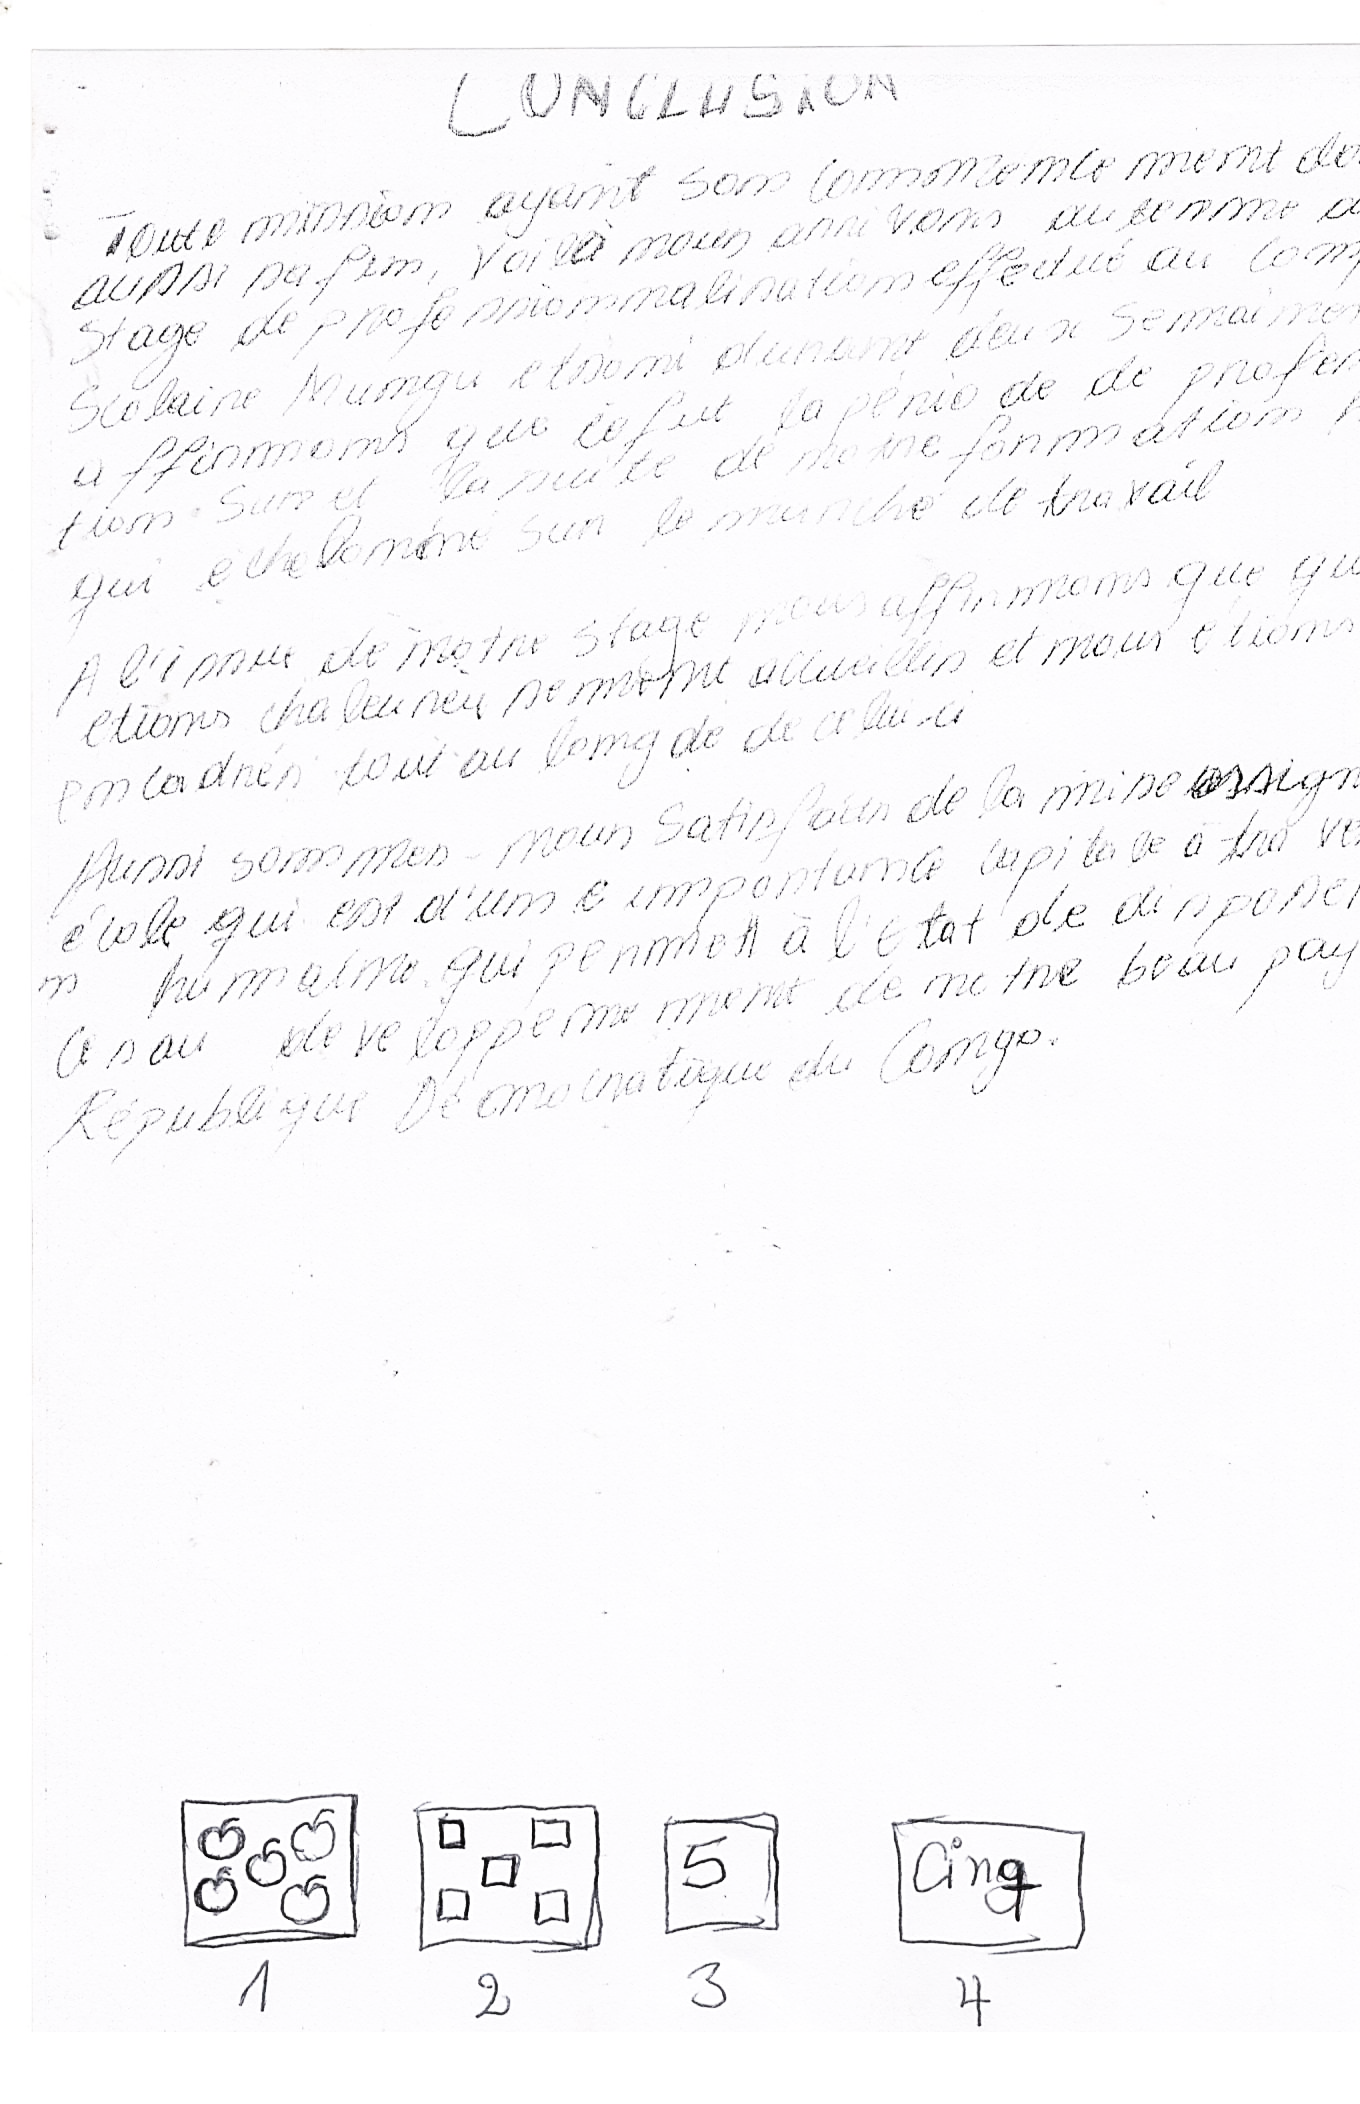 CONCLUSION
Toute mission ayant son commencement
aussi sa fin, voilà nous arrivons au terme
Stage de professionnalisation effectué au
Scolaire Mungu etsomi durant deux Semaines
affirmons que ce fut la période de
tion Sur et la suite de notre formation
qui echelonné sur le marché de travail
A l'issue de notre stage nous affirmons que
etions chaleureusement accueillis et nous etions
encadrés tout au long de de celui-ci
Aussi sommes-nous Satisfaits de la mise
école qui est d'une importance capitale à
humaine qui permet à l'Etat de disposer
developpement de notre beau
République Démocratique du Congo.
5 Cinq
1 2 3 4